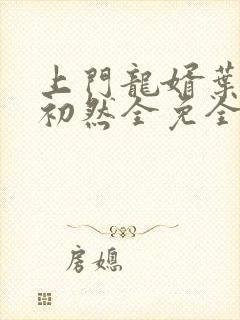 上門龍婿葉
初然全免全
房媳